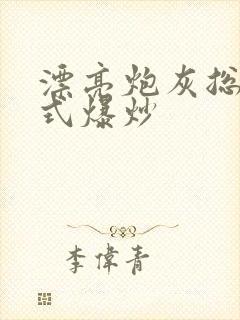 漂亮炮灰总
式爆炒
李偉青